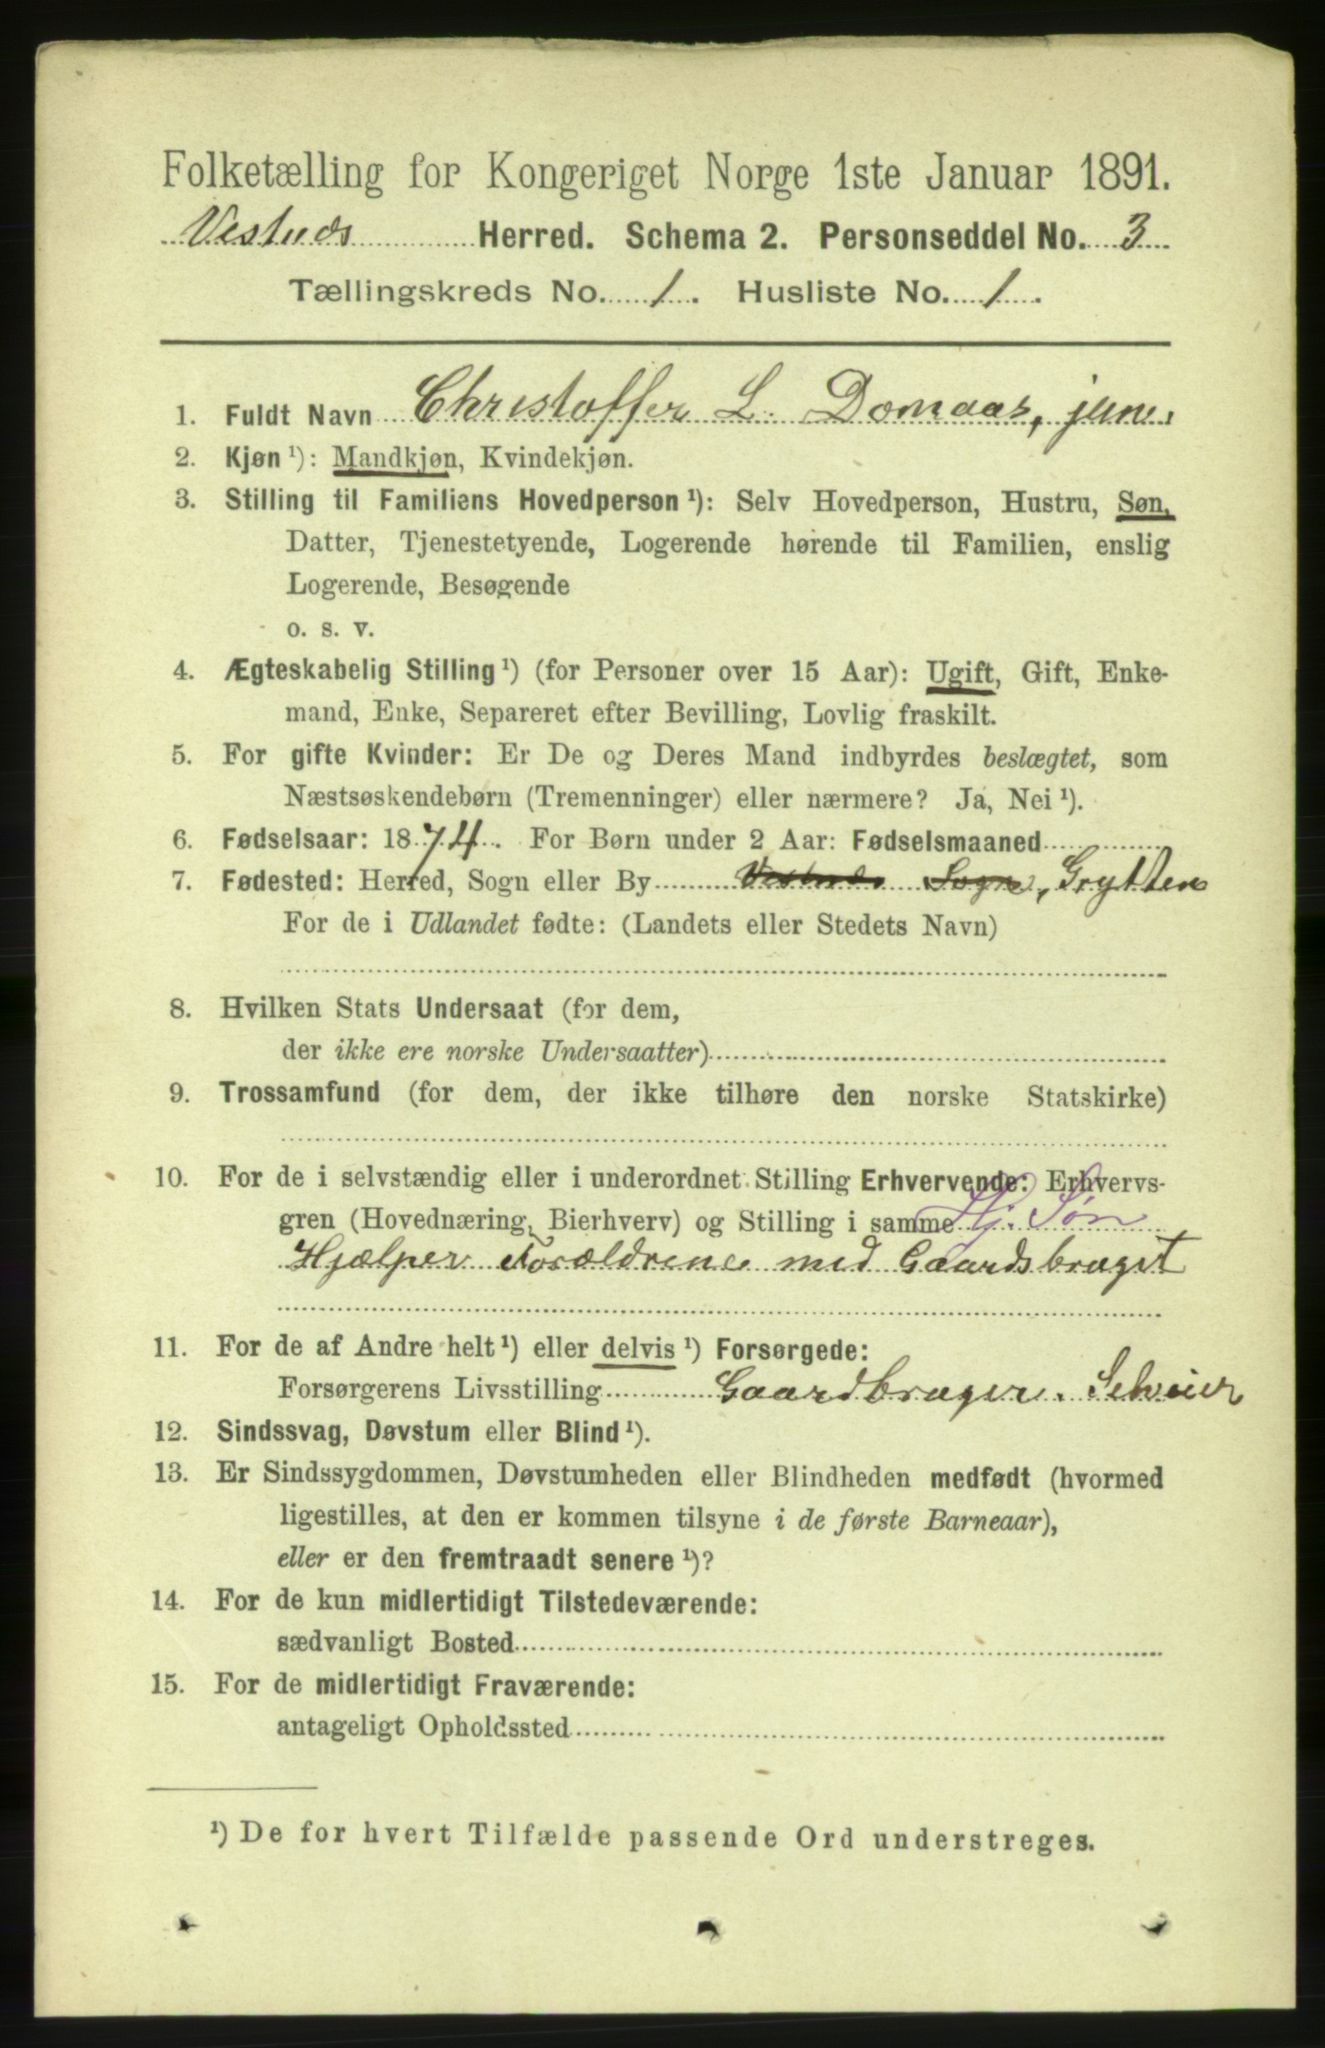 Folketælling for Kongeriget Norge 1ste Januar 1891.
Vestnæs Herred. Schema 2. Personseddel No. 3
Tællingskreds No. 1. Husliste No. 1.
1. Fuldt Navn Christoffer L. Domaas, june.
2. Kjøn ¹): Mandkjøn, Kvindekjøn.
3. Stilling til Familiens Hovedperson ¹): Selv Hovedperson, Hustru, Søn,
Datter, Tjenestetyende, Logerende hørende til Familien, enslig
Logerende, Besøgende
o. s. v.
4. Ægteskabelig Stilling ¹) (for Personer over 15 Aar): Ugift, Gift, Enke-
mand, Enke, Separeret efter Bevilling, Lovlig fraskilt.
5. For gifte Kvinder: Er De og Deres Mand indbyrdes beslægtet, som
Næstsøskendebørn (Tremenninger) eller nærmere? Ja, Nei ¹).
6. Fødselsaar: 1874. For Børn under 2 Aar: Fødselsmaaned
7. Fødested: Herred, Sogn eller By Vestnæs Sogn, Grytten
For de i Udlandet fødte: (Landets eller Stedets Navn)
8. Hvilken Stats Undersaat (for dem,
der ikke ere norske Undersaatter)
9. Trossamfund (for dem, der ikke tilhøre den norske Statskirke)
10. For de i selvstændig eller i underordnet Stilling Erhvervende: Erhvervs-
gren (Hovednæring, Bierhverv) og Stilling i samme Hj. Søn
Hjælper Forældrene med Gaardsbruget
11. For de af Andre helt ¹) eller delvis ¹) Forsørgede:
Forsørgerens Livsstilling Gaardbruger. Selveier
12. Sindssvag, Døvstum eller Blind ¹).
13. Er Sindssygdommen, Døvstumheden eller Blindheden medfødt (hvormed
ligestilles, at den er kommen tilsyne i de første Barneaar),
eller er den fremtraadt senere ¹)?
14. For de kun midlertidigt Tilstedeværende:
sædvanligt Bosted
15. For de midlertidigt Fraværende:
antageligt Opholdssted
¹) De for hvert Tilfælde passende Ord understreges.